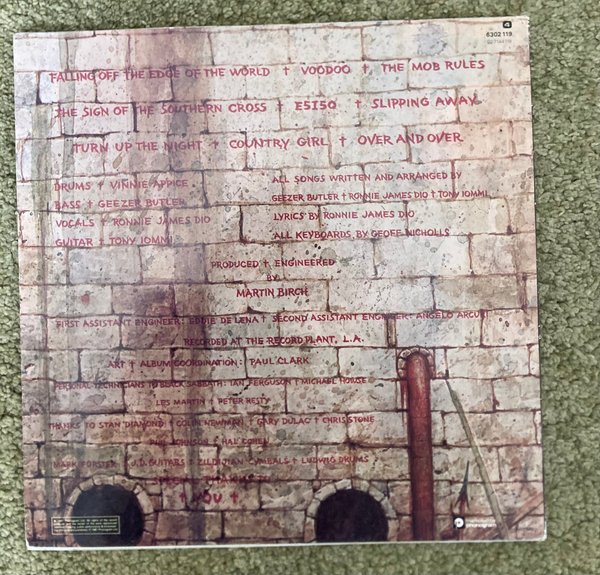 4
6302 119
FALLING OFF THE EDGE OF THE WORLD † VOODOO † THE MOB RULES
THE SIGN OF THE SOUTHERN CROSS † E5150 † SLIPPING AWAY
TURN UP THE NIGHT † COUNTRY GIRL † OVER AND OVER
DRUMS † VINNIE APPICE
BASS † GEEZER BUTLER
VOCALS † RONNIE JAMES DIO
GUITAR † TONY IOMMI
ALL SONGS WRITTEN AND ARRANGED BY
GEEZER BUTLER † RONNIE JAMES DIO † TONY IOMMI
LYRICS BY RONNIE JAMES DIO
ALL KEYBOARDS BY GEOFF NICHOLLS
PRODUCED † ENGINEERED
BY
MARTIN BIRCH
FIRST ASSISTANT ENGINEER: EDDIE DE LENA † SECOND ASSISTANT ENGINEER: ANGELO ARCURI
RECORDED AT THE RECORD PLANT, L.A.
ART † ALBUM COORDINATION: PAUL CLARK
PERSONAL TECHNICIANS TO BLACK SABBATH: IAN FERGUSON † MICHAEL HOWSE
LES MARTIN † PETER RESTY
THANKS TO STAN DIAMOND † COLIN NEWMAN † GARY DULAC † CHRIS STONE
PHIL JOHNSON † HAL COHEN
MARK FORSTER † J.D. GUITARS † ZILDJIAN CYMBALS † LUDWIG DRUMS
SPECIAL THANKS TO
† YOU †
phonogram